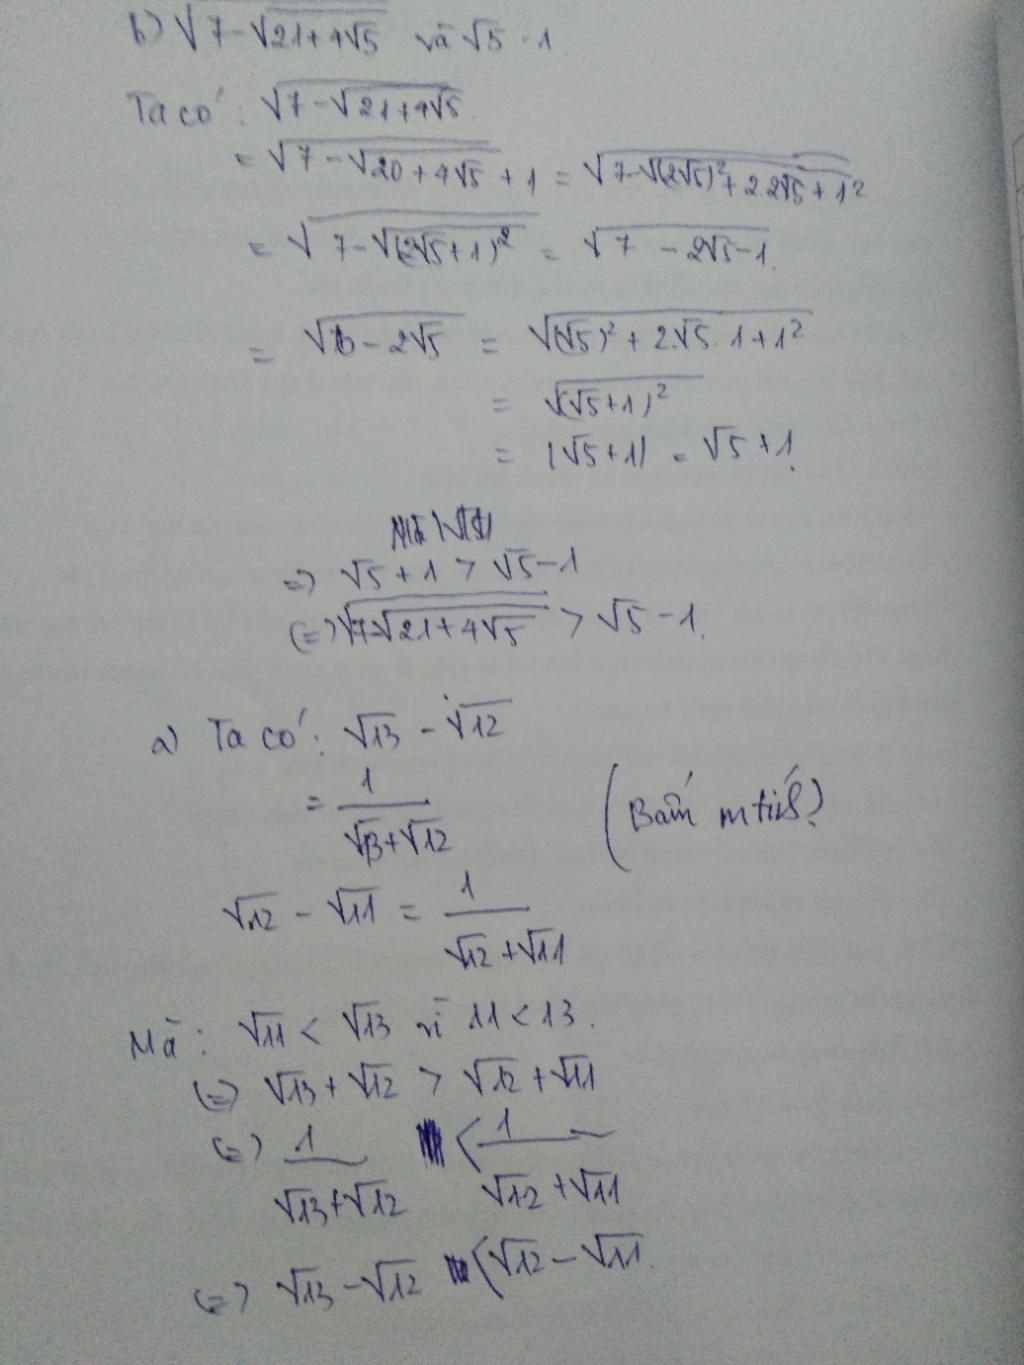 b) √(7-√(21+4√5)) và √5 - 1.
Ta có: √(7-√(21+4√5))
= √(7-√(20+4√5+1)) = √(7-√((2√5)²+2.2√5+1²))
= √(7-√((2√5+1)²)) = √(7-2√5-1).
= √(6-2√5) = √((√5)²+2.√5.1+1²)
= √((√5+1)²)
= |√5+1| = √5+1.
=> √5+1 > √5-1
<=> √(7-√(21+4√5)) > √5-1.
a) Ta có: √13 - √12
= 1/(√13+√12) (Bấm
√12 - √11 = 1/(√12+√11)
Mà: √11 < √13 vì 11 < 13.
<=> √13+√12 > √12+√11
<=> 1/(√13+√12) < 1/(√12+√11)
<=> √13-√12 < √12-√11.